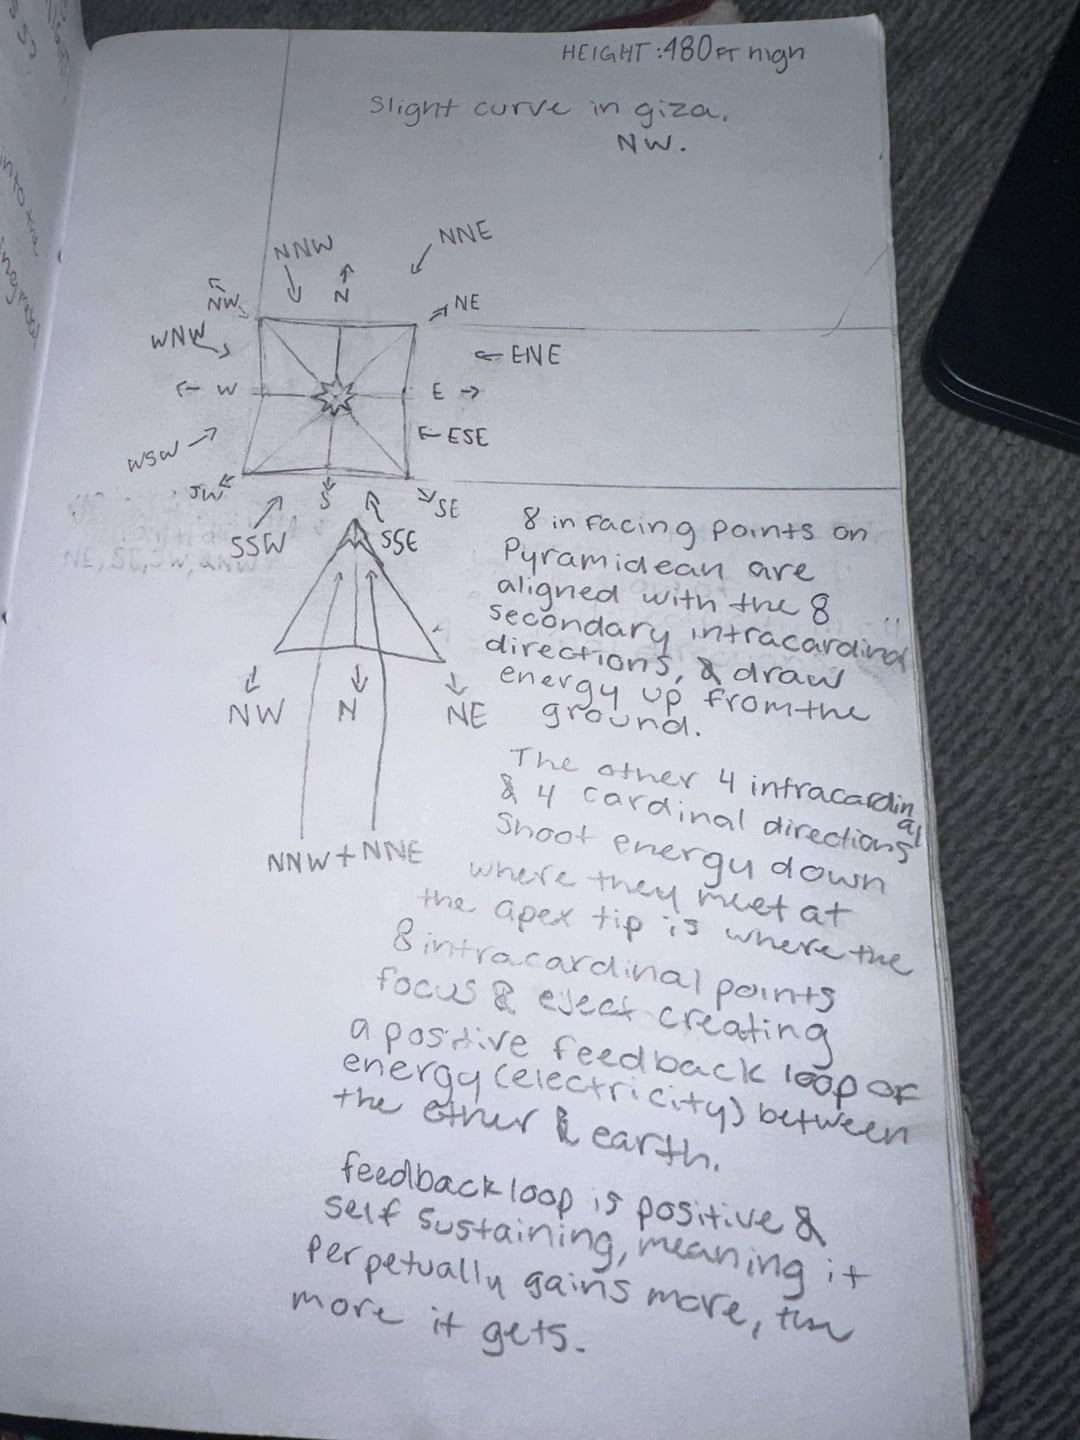 HEIGHT: 480FT high
Slight curve in giza.
NW.
NNW
NNE
N
NW
NE
WNW
ENE
W
E
ESE
WSW
SW
S
SE
SSW
SSE
NW
N
NE
NNW + NNE
8 in facing points on
Pyramidean are
aligned with the 8
secondary intracardinal
directions, & draw
energy up from the
ground.
The other 4 intracardinal
& 4 cardinal directions
shoot energy down
where they meet at
the apex tip is where the
8 intracardinal points
focus & eject creating
a positive feedback loop of
energy (electricity) between
the ether & earth.
feedback loop is positive &
self sustaining, meaning it
perpetually gains more, the
more it gets.